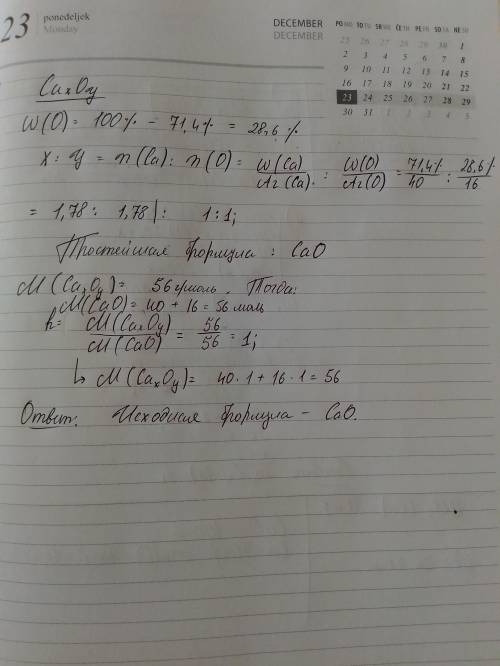 23 ponedeljek
Monday
DECEMBER
DECEMBER
PO MO TO TU SR WE ČE TH PE FR SO SA NE SU
25 26 27 28 29 30 1
2 3 4 5 6 7 8
9 10 11 12 13 14 15
16 17 18 19 20 21 22
23 24 25 26 27 28 29
30 31 1 2 3 4 5
CaxOy
W(O) = 100% - 71,4% = 28,6%
x : y = n(Ca) : n(O) = W(Ca)/Ar(Ca) : W(O)/Ar(O) = 71,4%/40 : 28,6%/16
= 1,78 : 1,78 | : 1 : 1;
Простейшая формула : CaO
M(CaxOy) = 56 г/моль. Тогда:
M(CaO) = 40 + 16 = 56 моль
k = M(CaxOy)/M(CaO) = 56/56 = 1;
↳ M(CaxOy) = 40 · 1 + 16 · 1 = 56
Ответ: Исходная формула - CaO.